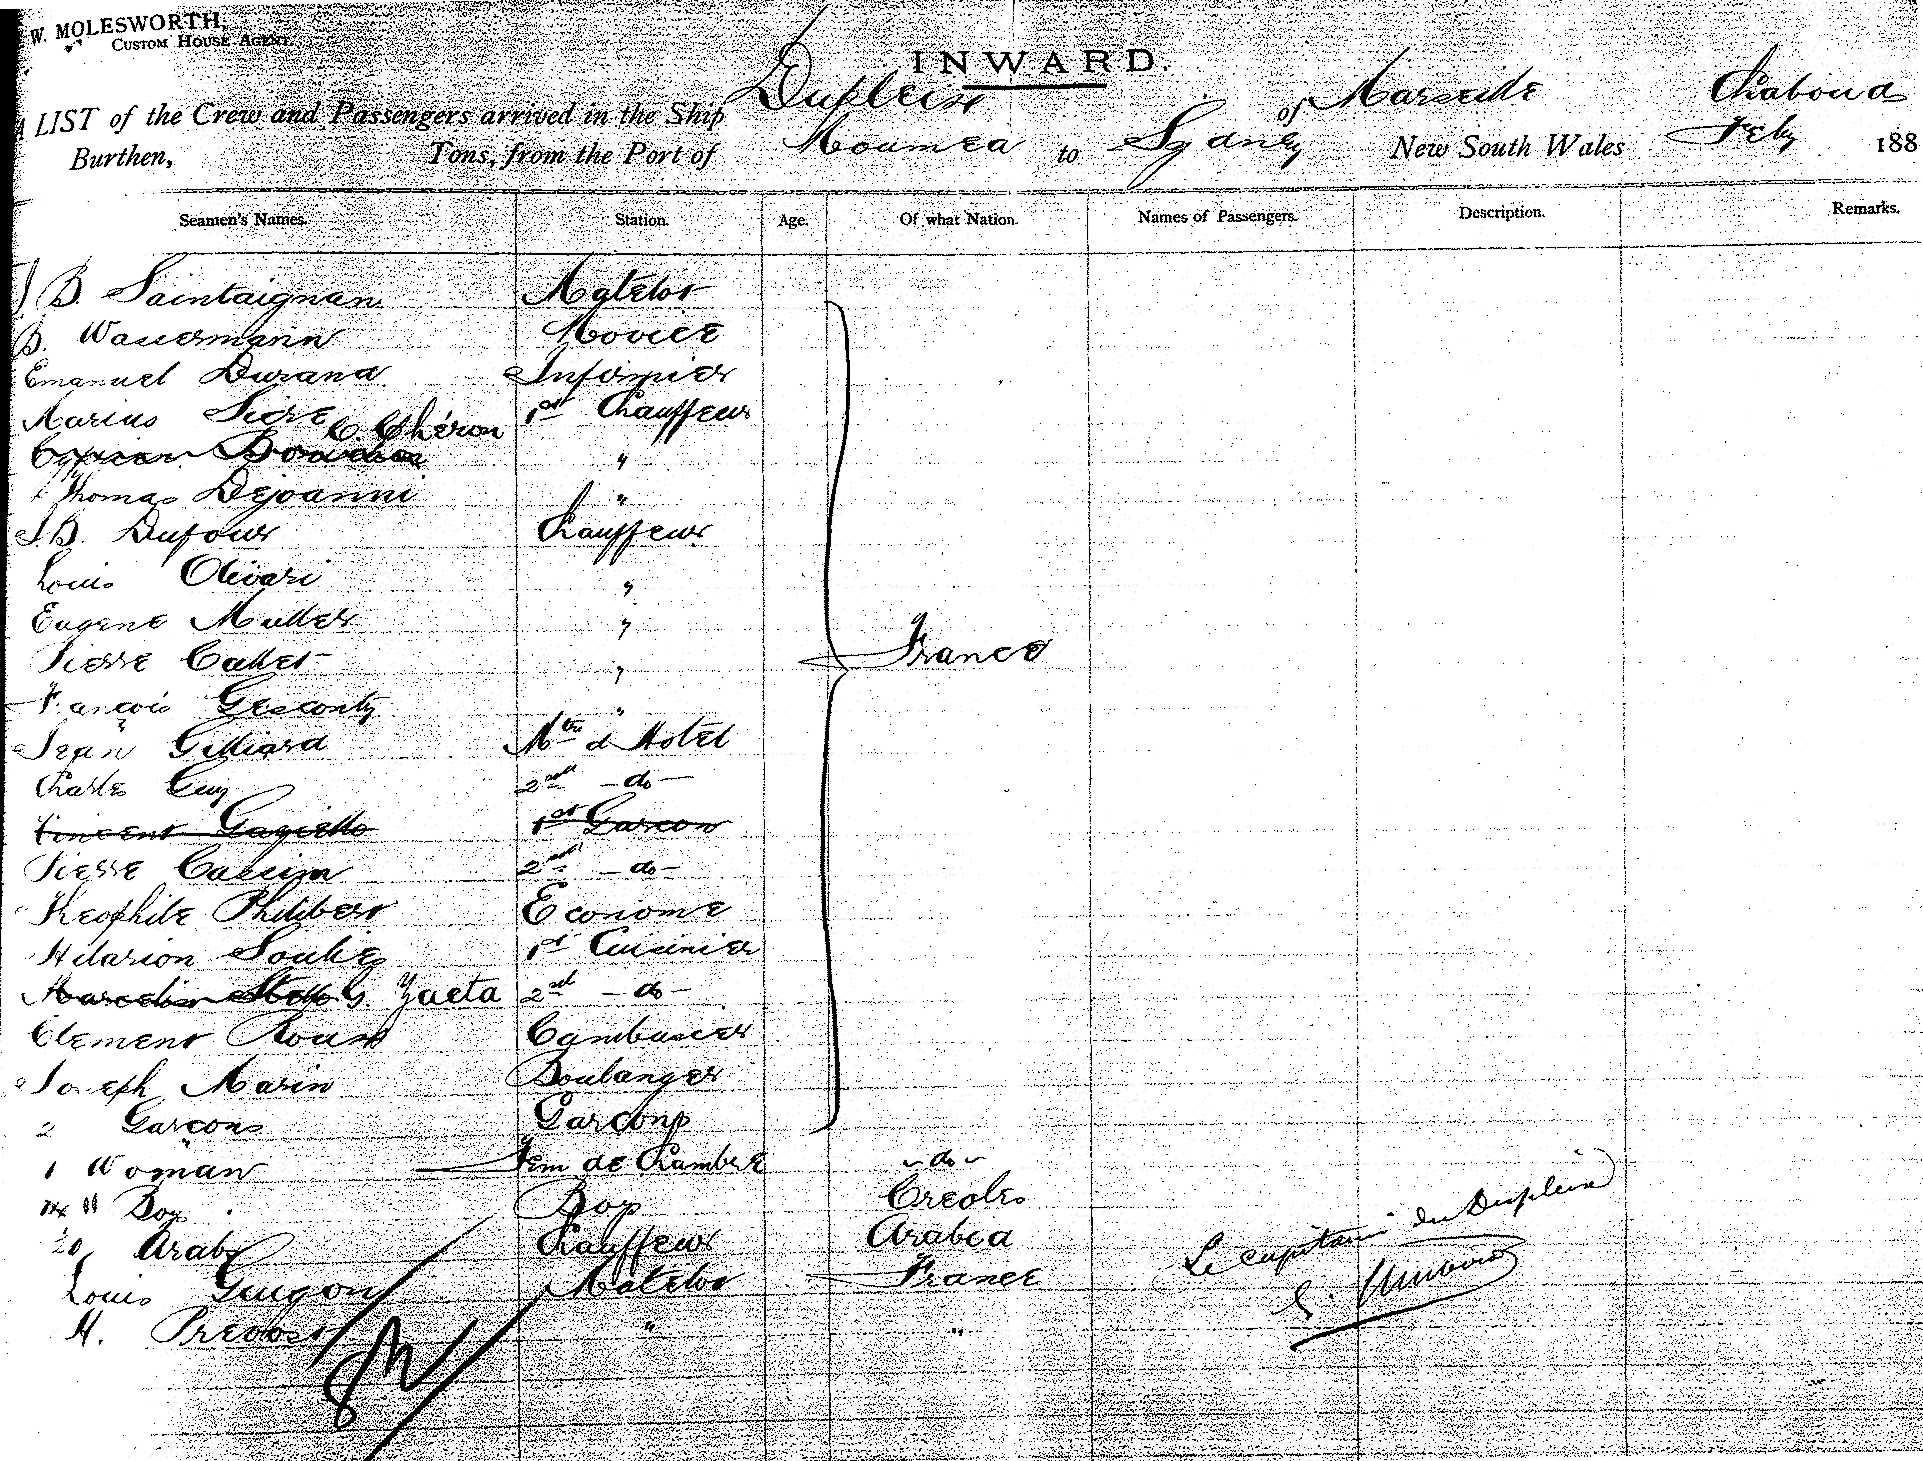 W. MOLESWORTH,
CUSTOM HOUSE AGENT.
INWARD.
A LIST of the Crew and Passengers arrived in the Ship Dupleix of Marseille Chaboud
Burthen, Tons, from the Port of Noumea to Sydney New South Wales Feby 188
Seamen's Names. Station. Age. Of what Nation. Names of Passengers. Description. Remarks.
J B. Saintaignan Matelot
B. Wauermann Novice
Emanuel Durand Infirmier
Marius Sicre 1er Chauffeur
C. Chéron
Cyprien "
Thomas Dejoanni "
J. B. Dufour Chauffeur
Louis Olivari "
Eugene Muller "
Pierre Callet " France
François Gesconty "
Jean Gilliard Mtre d Hotel
Charles Guy 2nd - do -
Vincent Gagiello 1er Garcon
Pierre Cassim 2nd - do -
Theophile Philibert Econome
Hilarion Soulies 1er Cuisinier
Marcelin G. Zaeta 2nd - do -
Clement Roux Cambusier
Joseph Marin Boulanger
2 Garçons Garçons
1 Woman Fem de Chambre - do -
Boy Boy Creoles
20 Arabs Chauffeur Arabia
Louis Guigon Matelot France
H. Prevost " "
Le capitaine du Dupleix